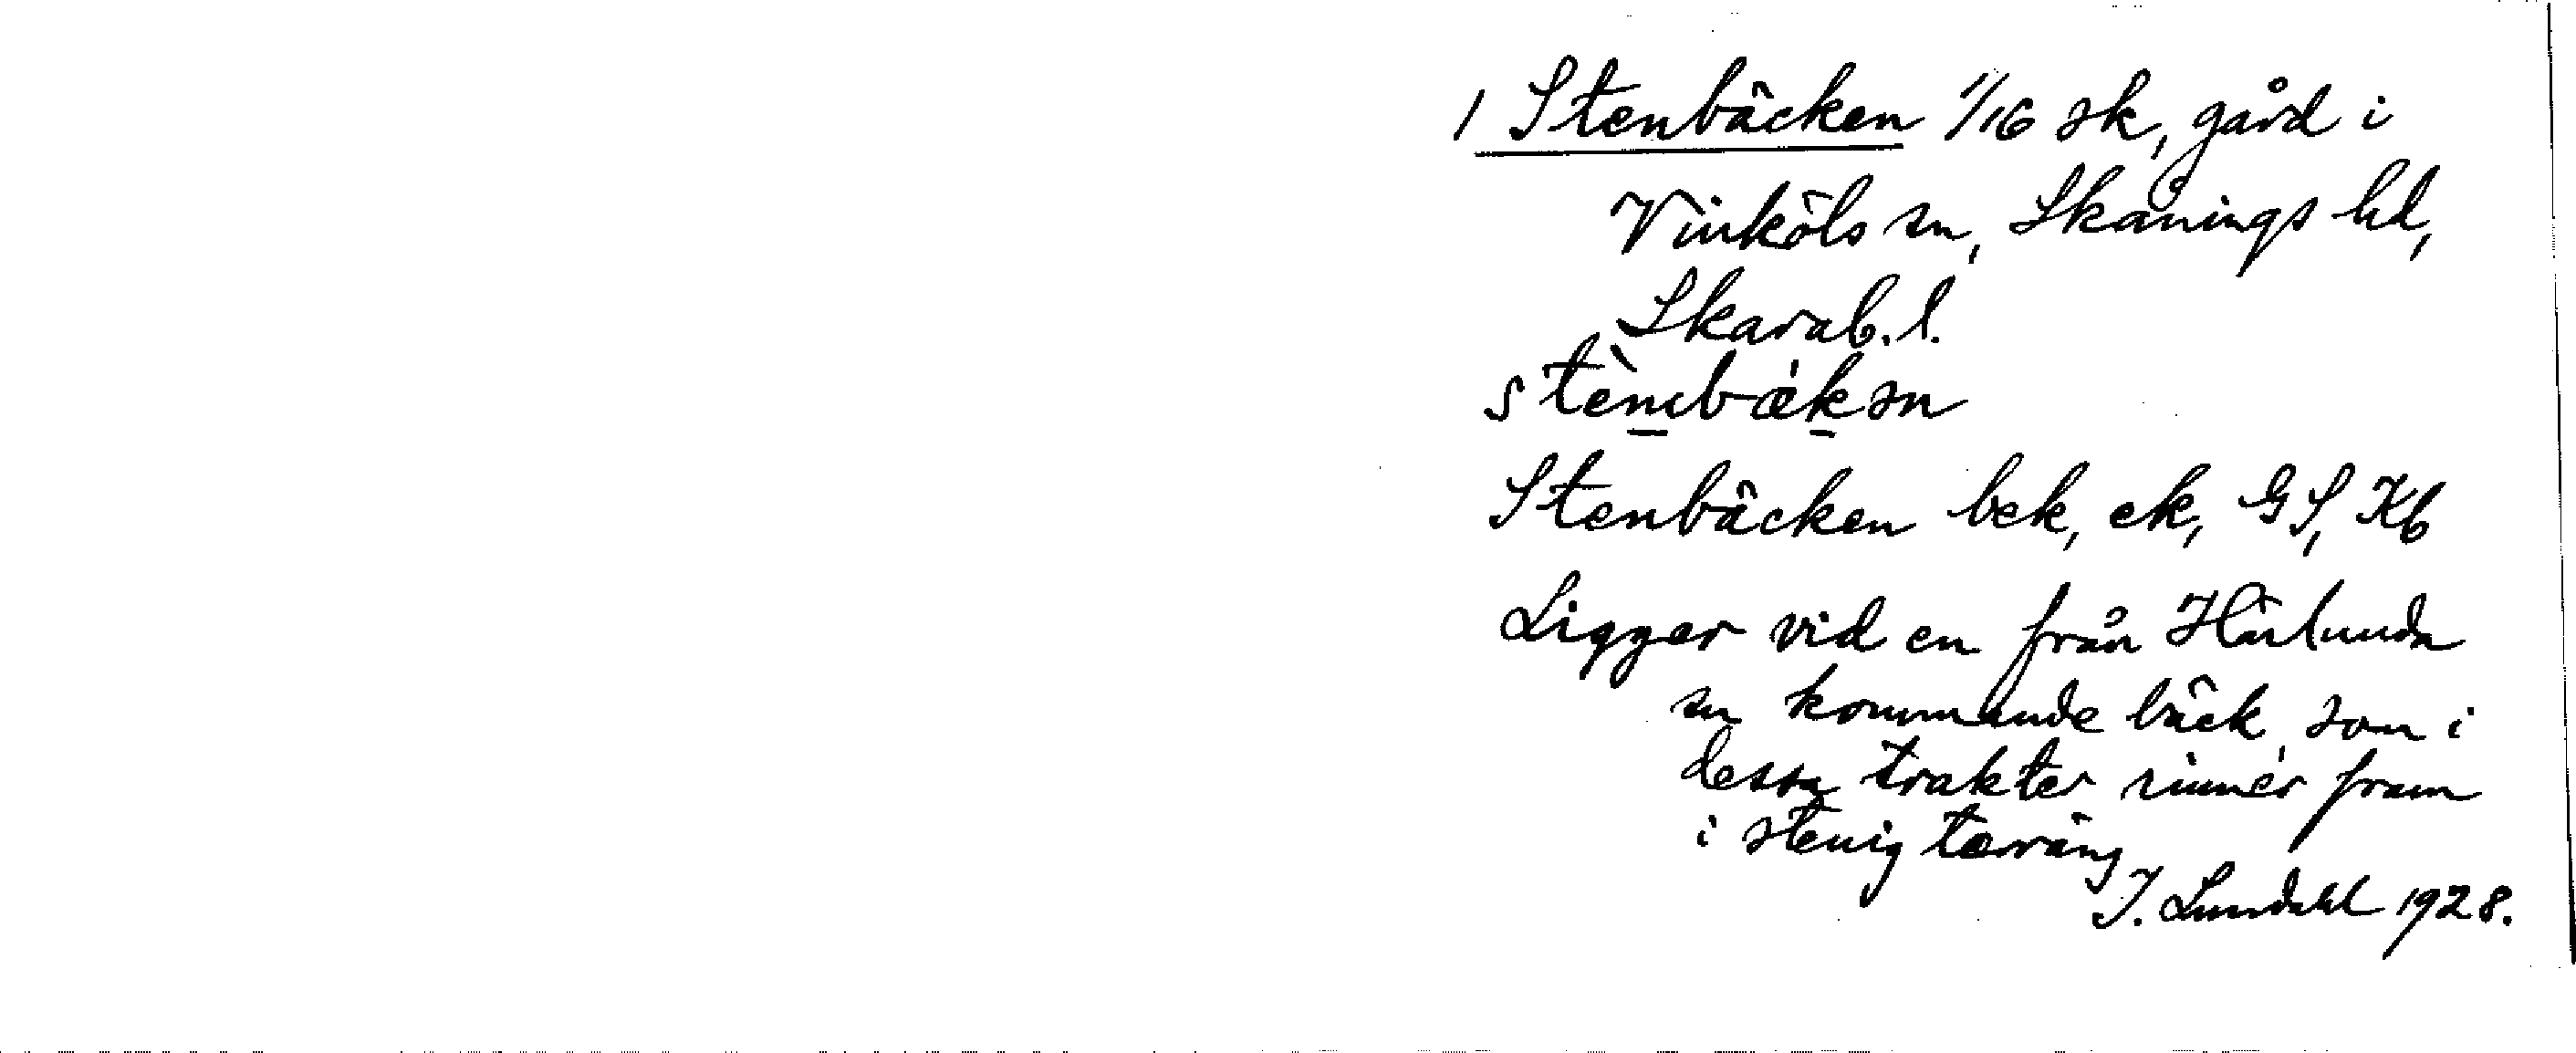 1 Stenbäcken 1/16 sk, gård i
Vinköls sn, Skånings hd,
Skarab. l.
stènbǽkən
Stenbäcken bek, ek, GS, Kb
Ligger vid en från Härlunda
sn kommande bäck, som i
dessa trakter rinner fram
i stenig terräng
I. Lundahl 1928.